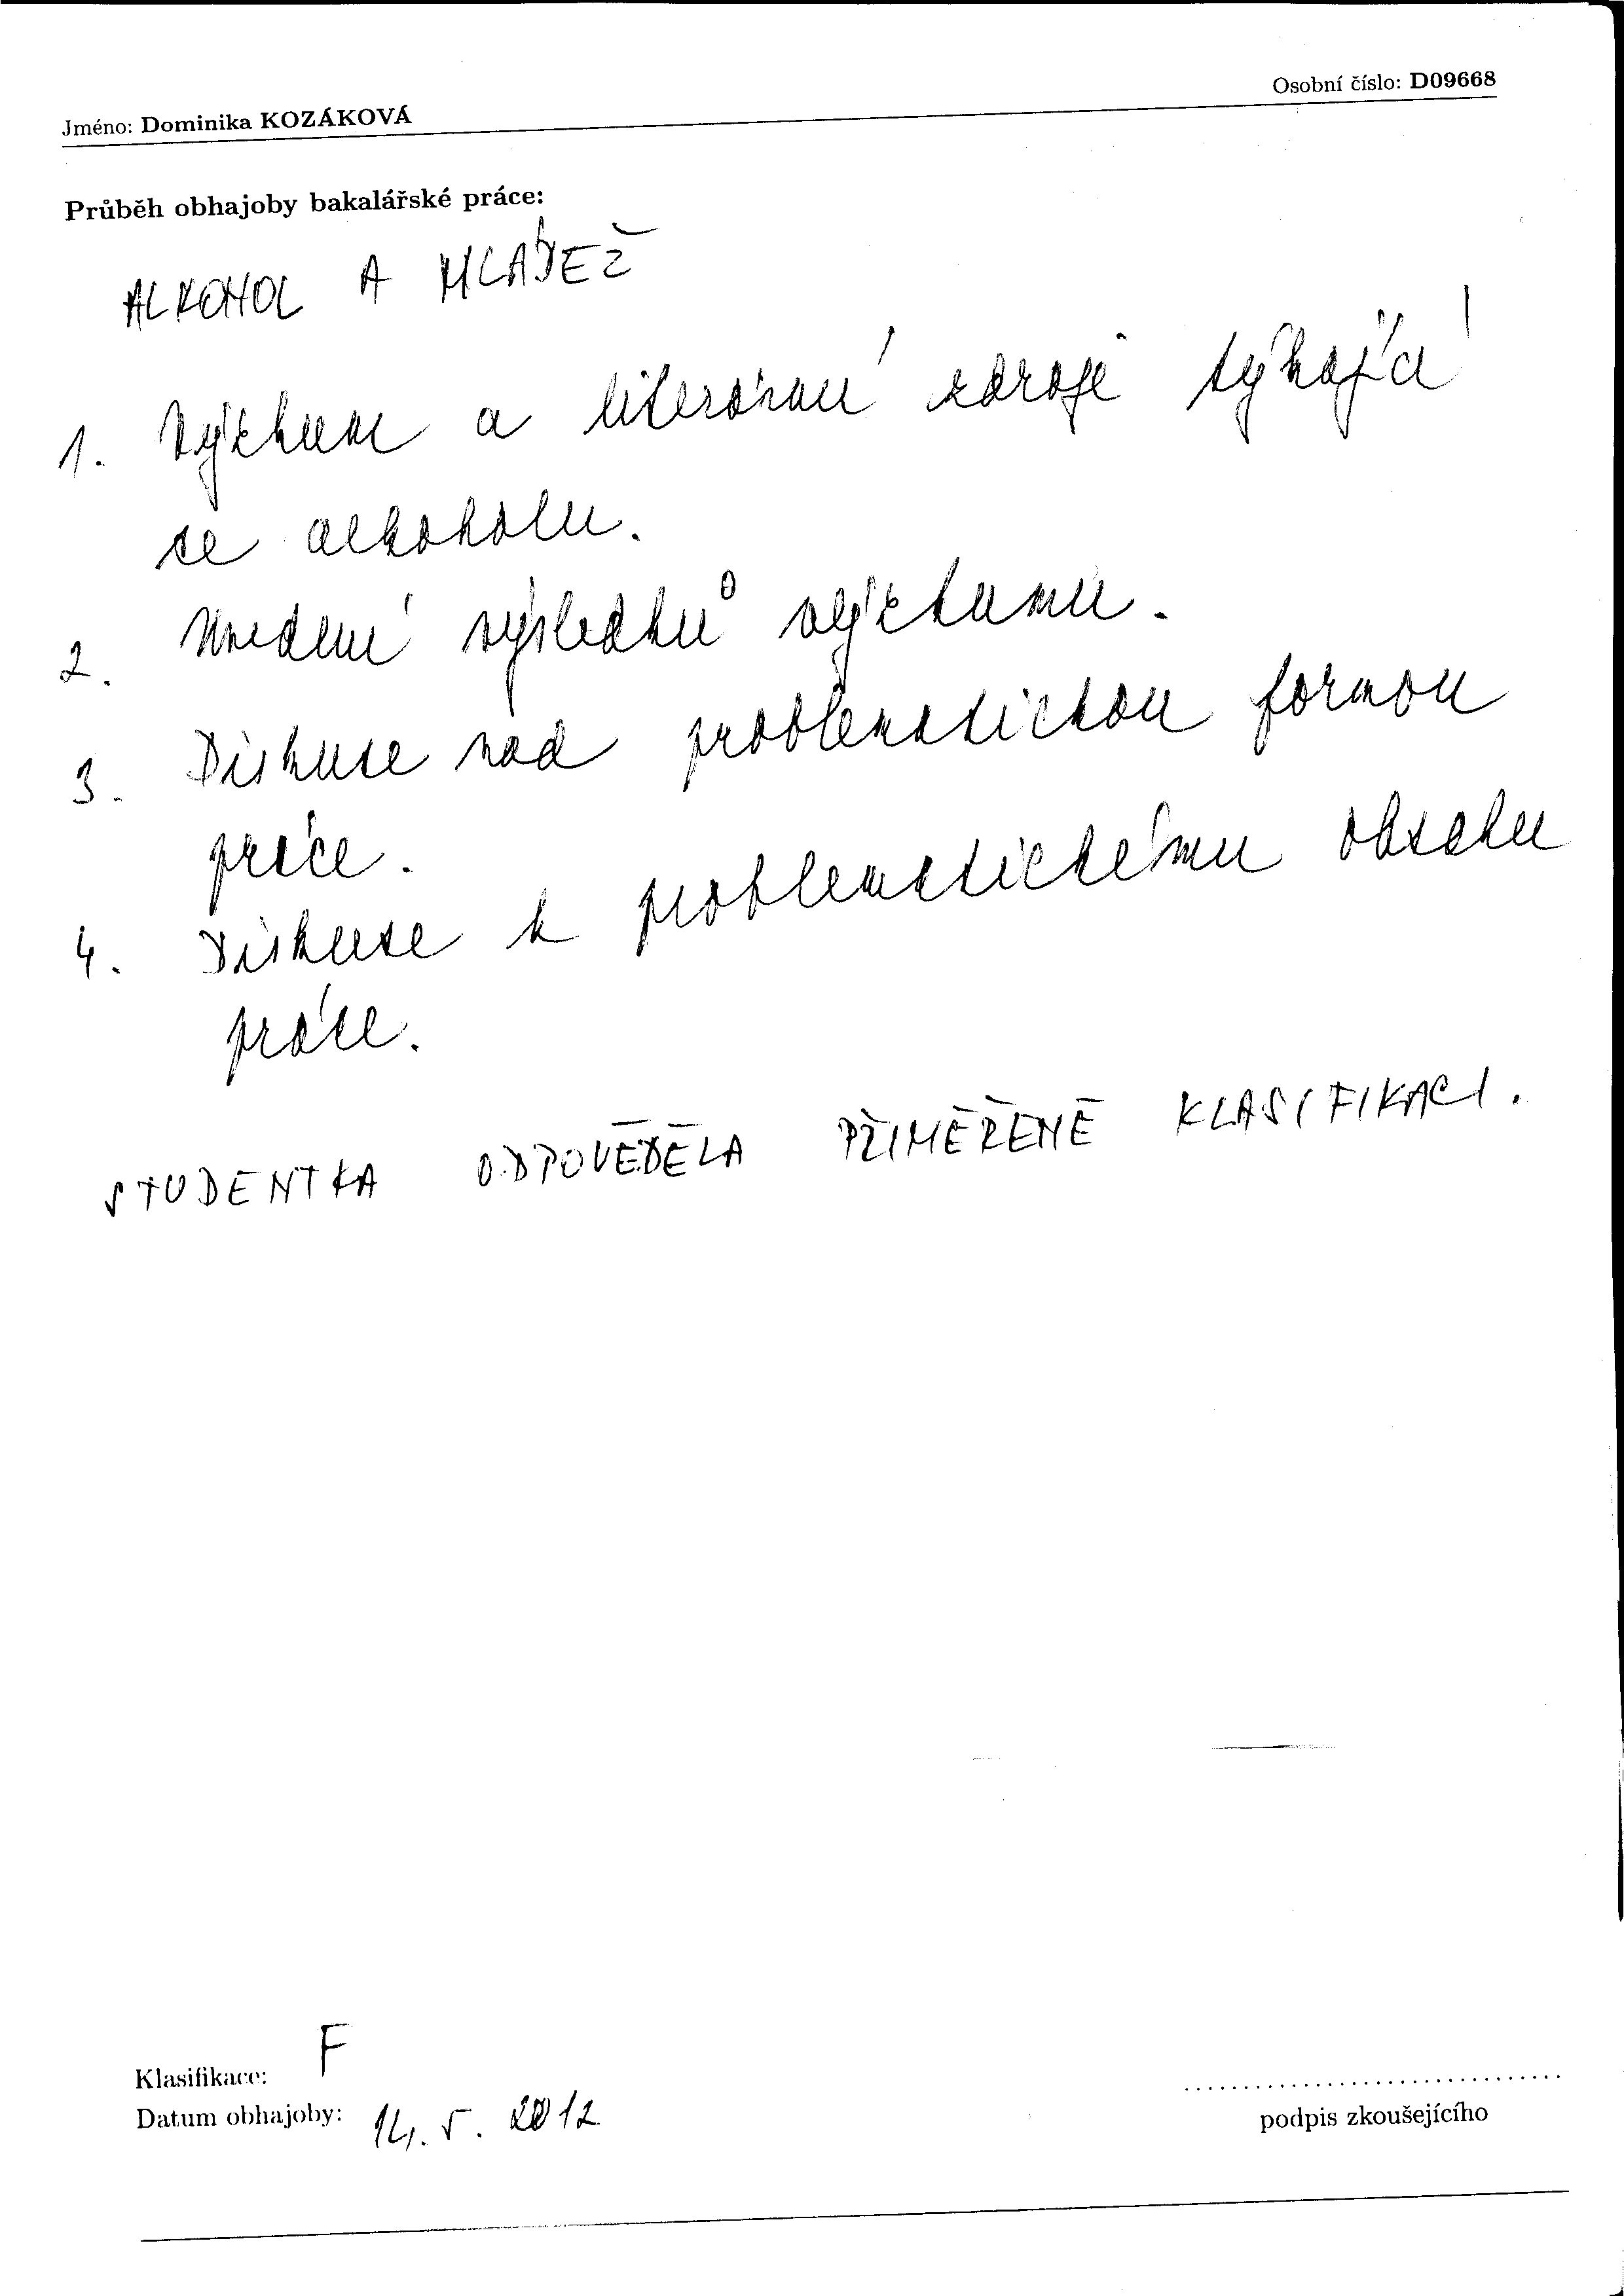 Osobní číslo: D09668
Jméno: Dominika KOZÁKOVÁ
Průběh obhajoby bakalářské práce:
ALKOHOL A MLÁDEŽ
1. Výzkum a literární zdroje týkající
se alkoholu.
2. Uvedení výsledků výzkumu.
3. Diskuse nad problematickou formou
práce.
4. Diskuse k problematickému obsahu
práce.
STUDENTKA ODPOVĚDĚLA PŘIMĚŘENĚ KLASIFIKACI.
Klasifikace: F
Datum obhajoby: 14. 5. 2012
podpis zkoušejícího